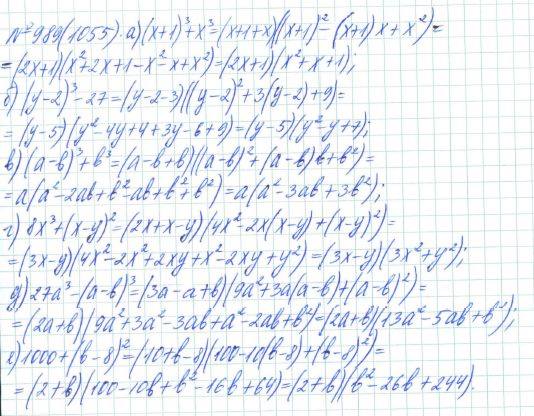 №989(1055). а) (x+1)³+x³=(x+1+x)((x+1)²-(x+1)x+x²)=
=(2x+1)(x²+2x+1-x²-x+x²)=(2x+1)(x²+x+1);
б) (y-2)³-27=(y-2-3)((y-2)²+3(y-2)+9)=
=(y-5)(y²-4y+4+3y-6+9)=(y-5)(y²-y+7);
в) (a-b)³+b³=(a-b+b)((a-b)²+(a-b)b+b²)=
=a(a²-2ab+b²-ab+b²+b²)=a(a²-3ab+3b²);
г) 8x³+(x-y)²=(2x+x-y)(4x²-2x(x-y)+(x-y)²)=
=(3x-y)(4x²-2x²+2xy+x²-2xy+y²)=(3x-y)(3x²+y²);
д) 27a³-(a-b)³=(3a-a+b)(9a²+3a(a-b)+(a-b)²)=
=(2a+b)(9a²+3a²-3ab+a²-2ab+b²)=(2a+b)(13a²-5ab+b²);
е) 1000+(b-8)²=(10+b-8)(100-10(b-8)+(b-8)²)=
=(2+b)(100-10b+b²-16b+64)=(2+b)(b²-26b+244).